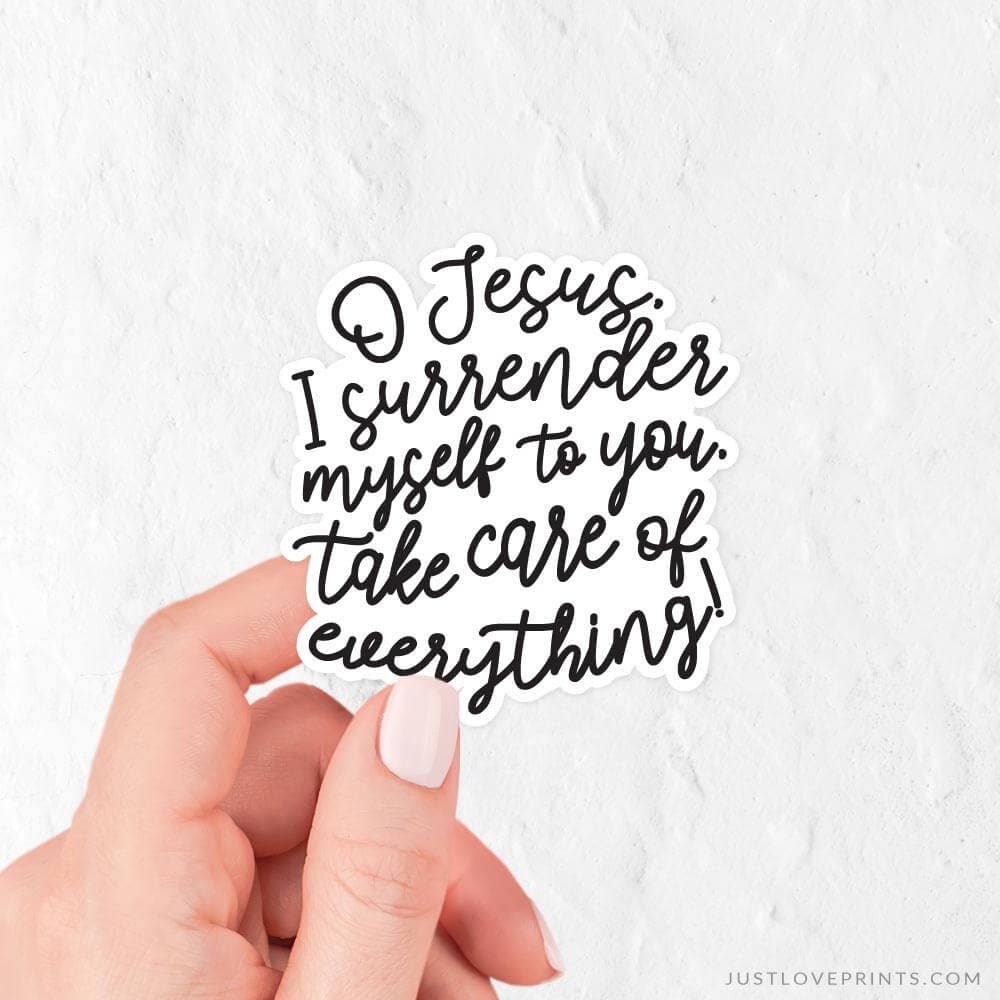 O Jesus,
I surrender
myself to you,
take care of
everything!
JUSTLOVEPRINTS.COM